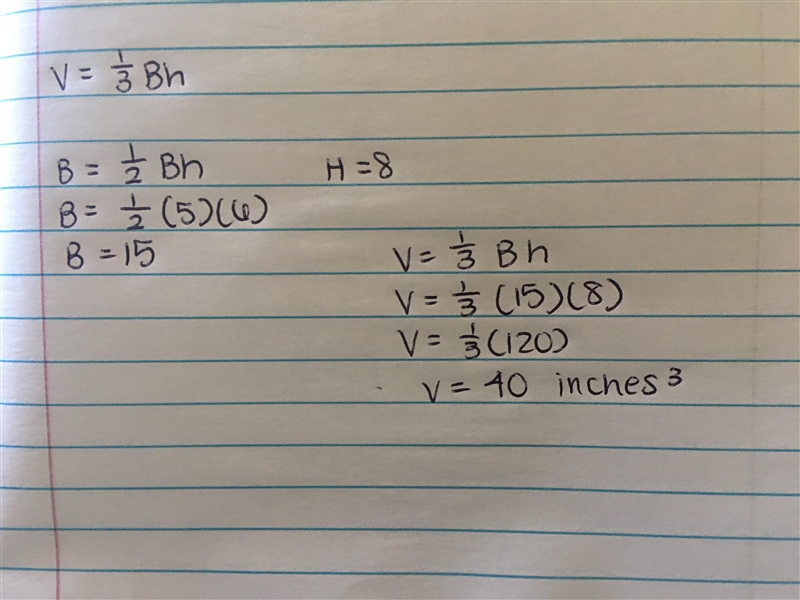 V = 1/3 Bh
B = 1/2 Bh
B = 1/2 (5)(6)
B = 15
H = 8
V = 1/3 Bh
V = 1/3 (15)(8)
V = 1/3 (120)
V = 40 inches³